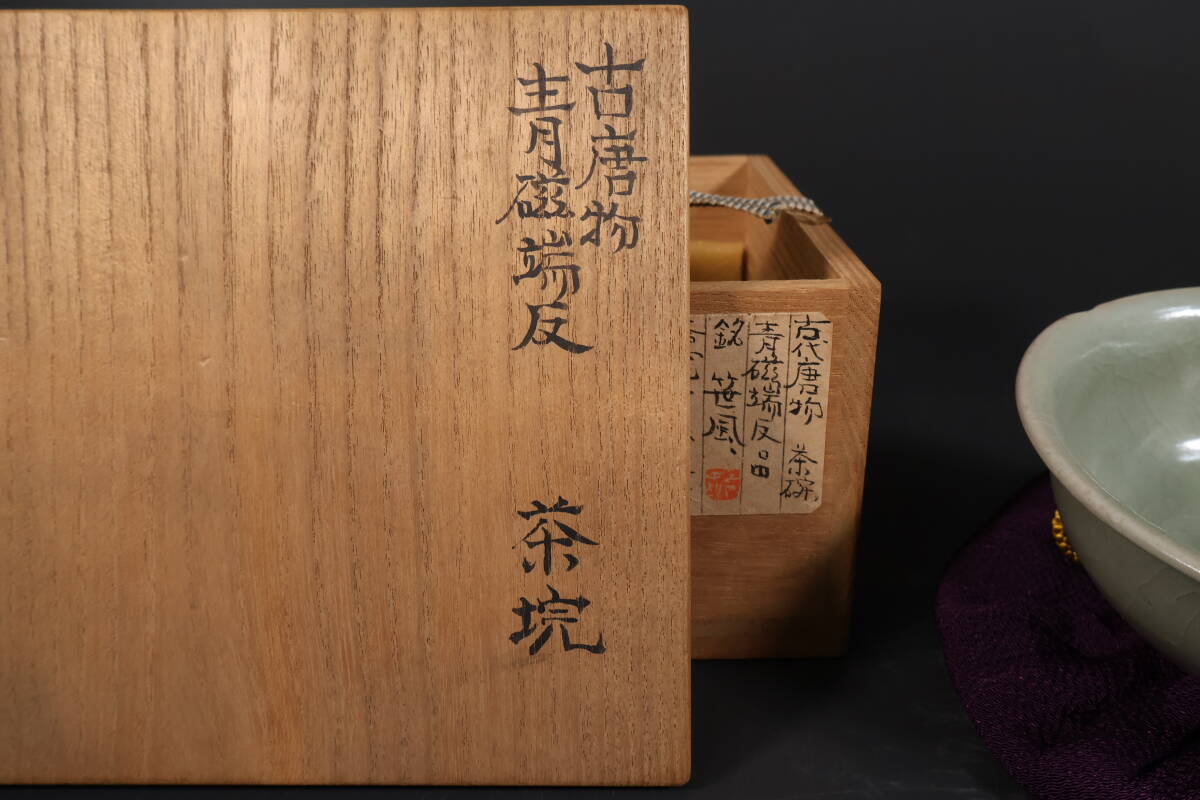 古唐物
青磁端反
茶垸
古代唐物 茶碗
青磁端反
銘 笹風